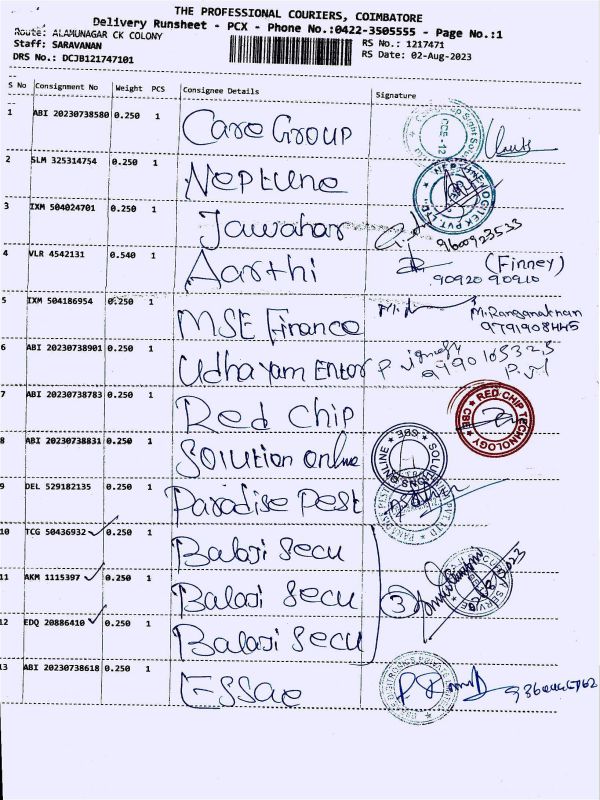 THE PROFESSIONAL COURIERS, COIMBATORE
Delivery Runsheet - PCX - Phone No.:0422-3505555 - Page No.:1
Route: ALAMUNAGAR CK COLONY
Staff: SARAVANAN RS No.: 1217471
DRS No.: DCJB121747101 RS Date: 02-Aug-2023
S No Consignment No Weight PCS Consignee Details Signature
1 ABI 20230738580 0.250 1 Care Group
2 SLM 325314754 0.250 1 Neptune
3 IXM 504024701 0.250 1 Jawahar 9600923533
4 VLR 4542131 0.540 1 Aarthi (Finney)
90920 90910
5 IXM 504186954 0.250 1 MSE Finance M. Ranganathan
6 ABI 20230738901 0.250 1 Udhayam Enter
7 ABI 20230738783 0.250 1 Red Chip RED CHIP TECHNOLOGY CBE
8 ABI 20230738831 0.250 1 Solution Online CBE SOLUTIONS ONLINE
9 DEL 529182135 0.250 1 Paradise Pest
10 TCG 50436932 0.250 1 Balaji Secu
11 AKM 1115397 0.250 1 Balaji Secu 3
12 EDQ 20886410 0.250 1 Balaji Secu
13 ABI 20230738618 0.250 1 Essae